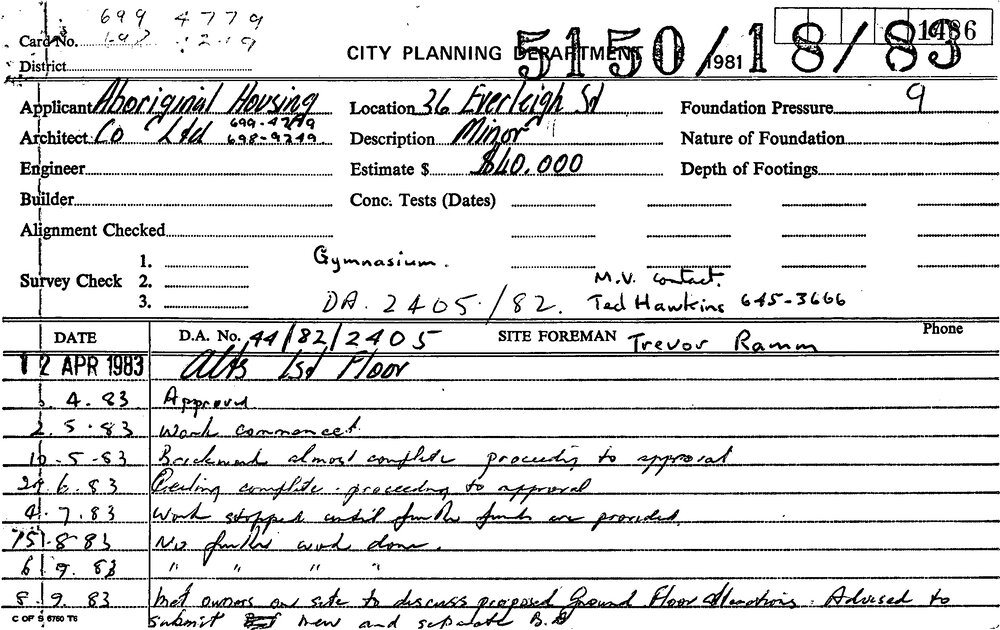 699 4779
Card No. 698 9249
District
CITY PLANNING DEPARTMENT 5150/1981 18/83 1486
Applicant Aboriginal Housing Location 36 Everleigh St Foundation Pressure 9
Architect Co Ltd 699-4779 698-9249 Description Minor Nature of Foundation
Engineer Estimate $ $40.000 Depth of Footings
Builder Conc. Tests (Dates)
Alignment Checked
1. Gymnasium.
Survey Check 2. M.V. contact.
3. DA. 2405/82. Ted Hawkins 645-3666
DATE D.A. No. 44/82/2405 SITE FOREMAN Trevor Ramm Phone
12 APR 1983 Alts 1st Floor
4. 83 Approved
2. 5. 83 Work commenced
10-5-83 Brickwork almost complete proceeding to approval
29. 6. 83 Ceiling complete - proceeding to approval
4. 7. 83 Work stopped until further funds are provided.
8 83 No further work done.
6 9. 83 " " " "
8 9. 83 Met owners on site to discuss proposed Ground Floor Alterations. Advised to
submit new and separate B.A
C OF S 6760 T6